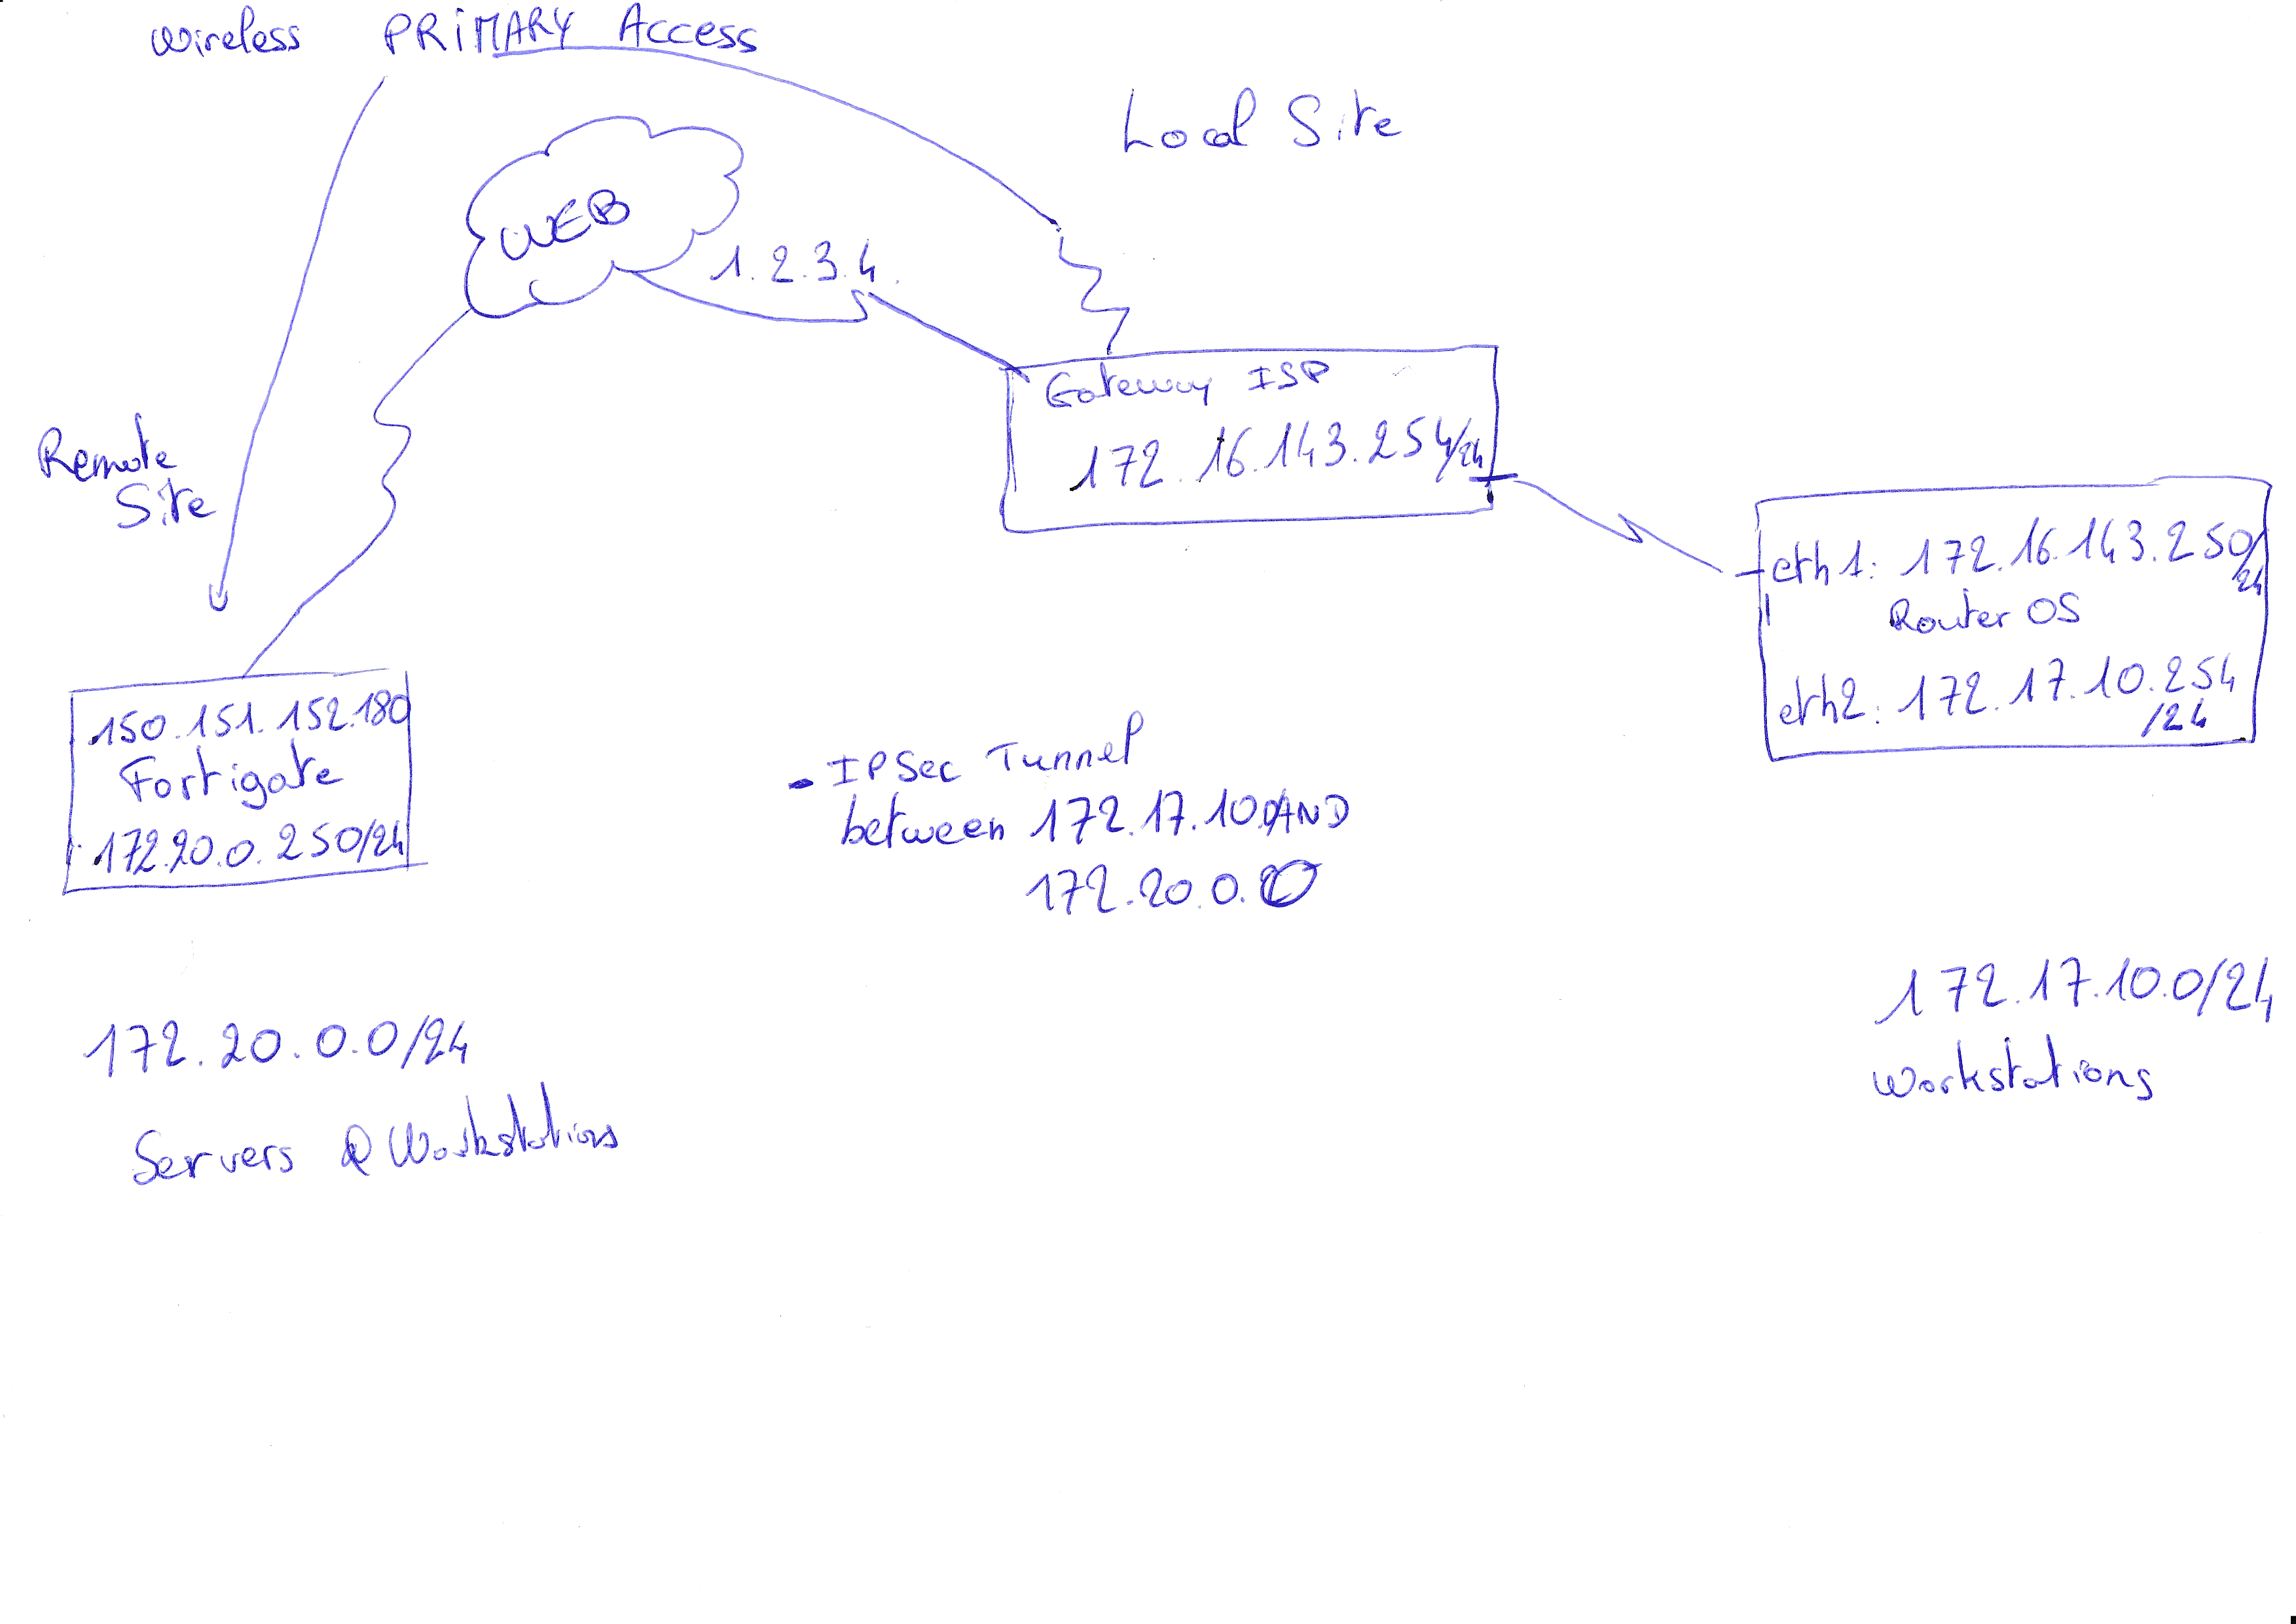 Wireless PRiMARY Access
Local Site
WEB
1.2.3.4
Gateway ISP
172.16.143.254/24
Remote
Site
eth1: 172.16.143.250/24
Router OS
eth2: 172.17.10.254
/24
150.151.152.180
Fortigate
172.20.0.250/24
- IPSec Tunnel
between 172.17.10.0 AND
172.20.0.0
172.17.10.0/24
Workstations
172.20.0.0/24
Servers & Workstations